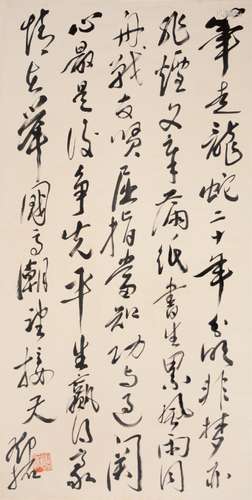 筆走龍蛇二十年分明非夢亦
非煙文章滿紙書生累風雨同
舟戰友賢屈指當知功与過関
心最是後争先平生贏得豪
情在舉國高潮望接天